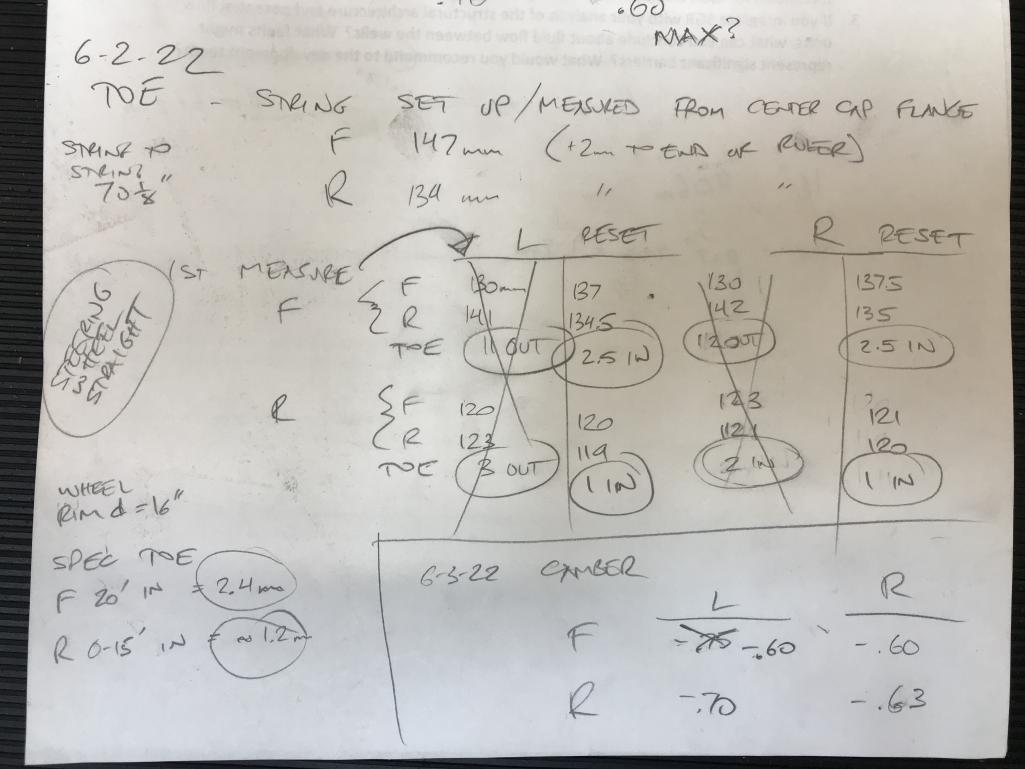 .60
MAX?
6-2-22
TOE - STRING SET UP/MEASURED FROM CENTER CAP FLANGE
STRING TO STRING 70 1/8"
F 147mm (+2mm TO END OF RULER)
R 134 mm " "
L RESET R RESET
STEERING WHEEL STRAIGHT
1ST MEASURE
F
F 130mm 137 130 137.5
R 141 134.5 142 135
TOE 11 OUT 2.5 IN 12 OUT 2.5 IN
R
F 120 120 123 121
R 123 119 121 120
TOE 3 OUT 1 IN 2 IN 1 IN
WHEEL
RIM d = 16"
SPEC TOE
F 20' IN = 2.4mm
R 0-15' IN = ∞ 1.2m
6-3-22 CAMBER
L R
F -.70 -.60 -.60
R -.70 -.63